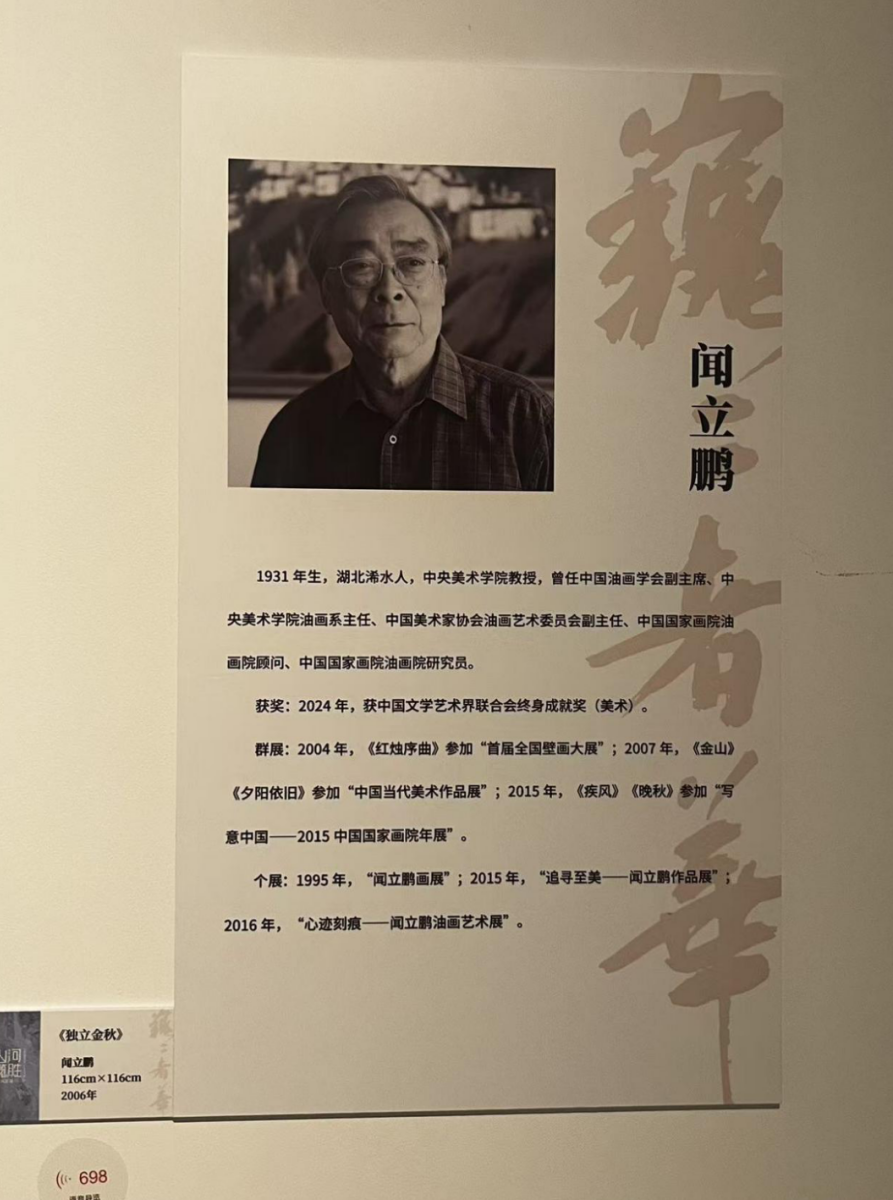 闻立鹏
1931 年生，湖北浠水人，中央美术学院教授，曾任中国油画学会副主席、中
央美术学院油画系主任、中国美术家协会油画艺术委员会副主任、中国国家画院油
画院顾问、中国国家画院油画院研究员。
获奖：2024 年，获中国文学艺术界联合会终身成就奖（美术）。
群展：2004 年，《红烛序曲》参加“首届全国壁画大展”；2007 年，《金山》
《夕阳依旧》参加“中国当代美术作品展”；2015 年，《疾风》《晚秋》参加“写
意中国——2015 中国国家画院年展”。
个展：1995 年，“闻立鹏画展”；2015 年，“追寻至美——闻立鹏作品展”；
2016 年，“心迹刻痕——闻立鹏油画艺术展”。
《独立金秋》
闻立鹏
116cm×116cm
2006年
698